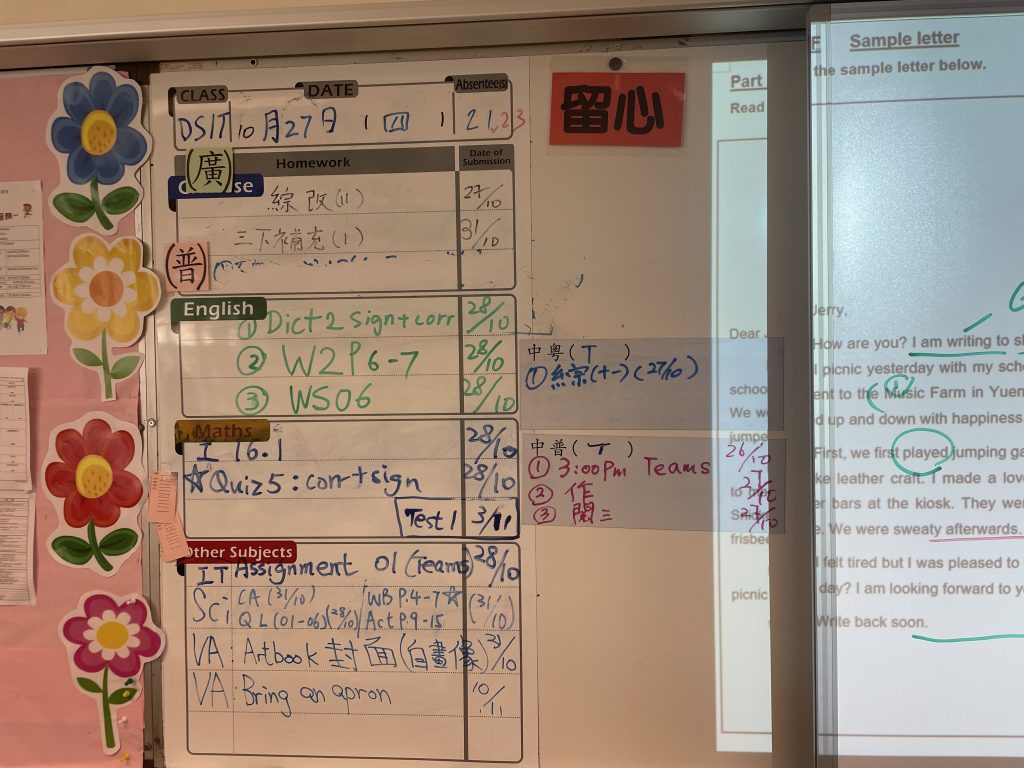 CLASS DATE Absentee(s)
D5IT 10月27日 (四) 21,23
Homework Date of Submission
(廣)
綜改(11) 27/10
三下補充(1) 31/10
(普)
English
① Dict 2 sign + corr 28/10
② W2 P6-7 28/10
③ WS06 28/10
Maths
16.1 28/10
☆Quiz5: corr+sign 28/10
Test 1 3/11
Other Subjects
IT Assignment 01 (Teams) 28/10
Sci CA (31/10) WB P.4-7☆ (31/10)
QL(01-06)(28/10) Act P.9-15
VA: Artbook 封面(自畫像) 31/10
VA: Bring an apron 10/11
留心
中粵( T )
(27/10)
中普( T )
① 3:00pm Teams 26/10
② 作 27/10
③ 閱三 27/10
Part
Read
Dear
schoo
We we
jumpe
frisbee
picnic
F Sample letter
the sample letter below.
Jerry,
How are you? I am writing to s
l picnic yesterday with my scho
ent to the Music Farm in Yuen
d up and down with happiness
①
First, we first played jumping ga
ke leather craft. I made a love
er bars at the kiosk. They wer
e. We were sweaty afterwards.
I felt tired but I was pleased to
day? I am looking forward to yo
Write back soon.